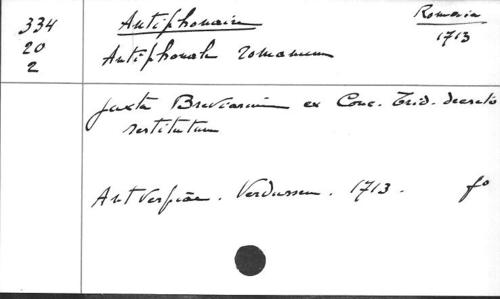 334 Antiphonaire Romain
20 1713
2 Antiphonale romanum
juxta Breviarium ex Conc. Trid. decreto
restitutum
Antverpiae. Verdussen. 1713. fo